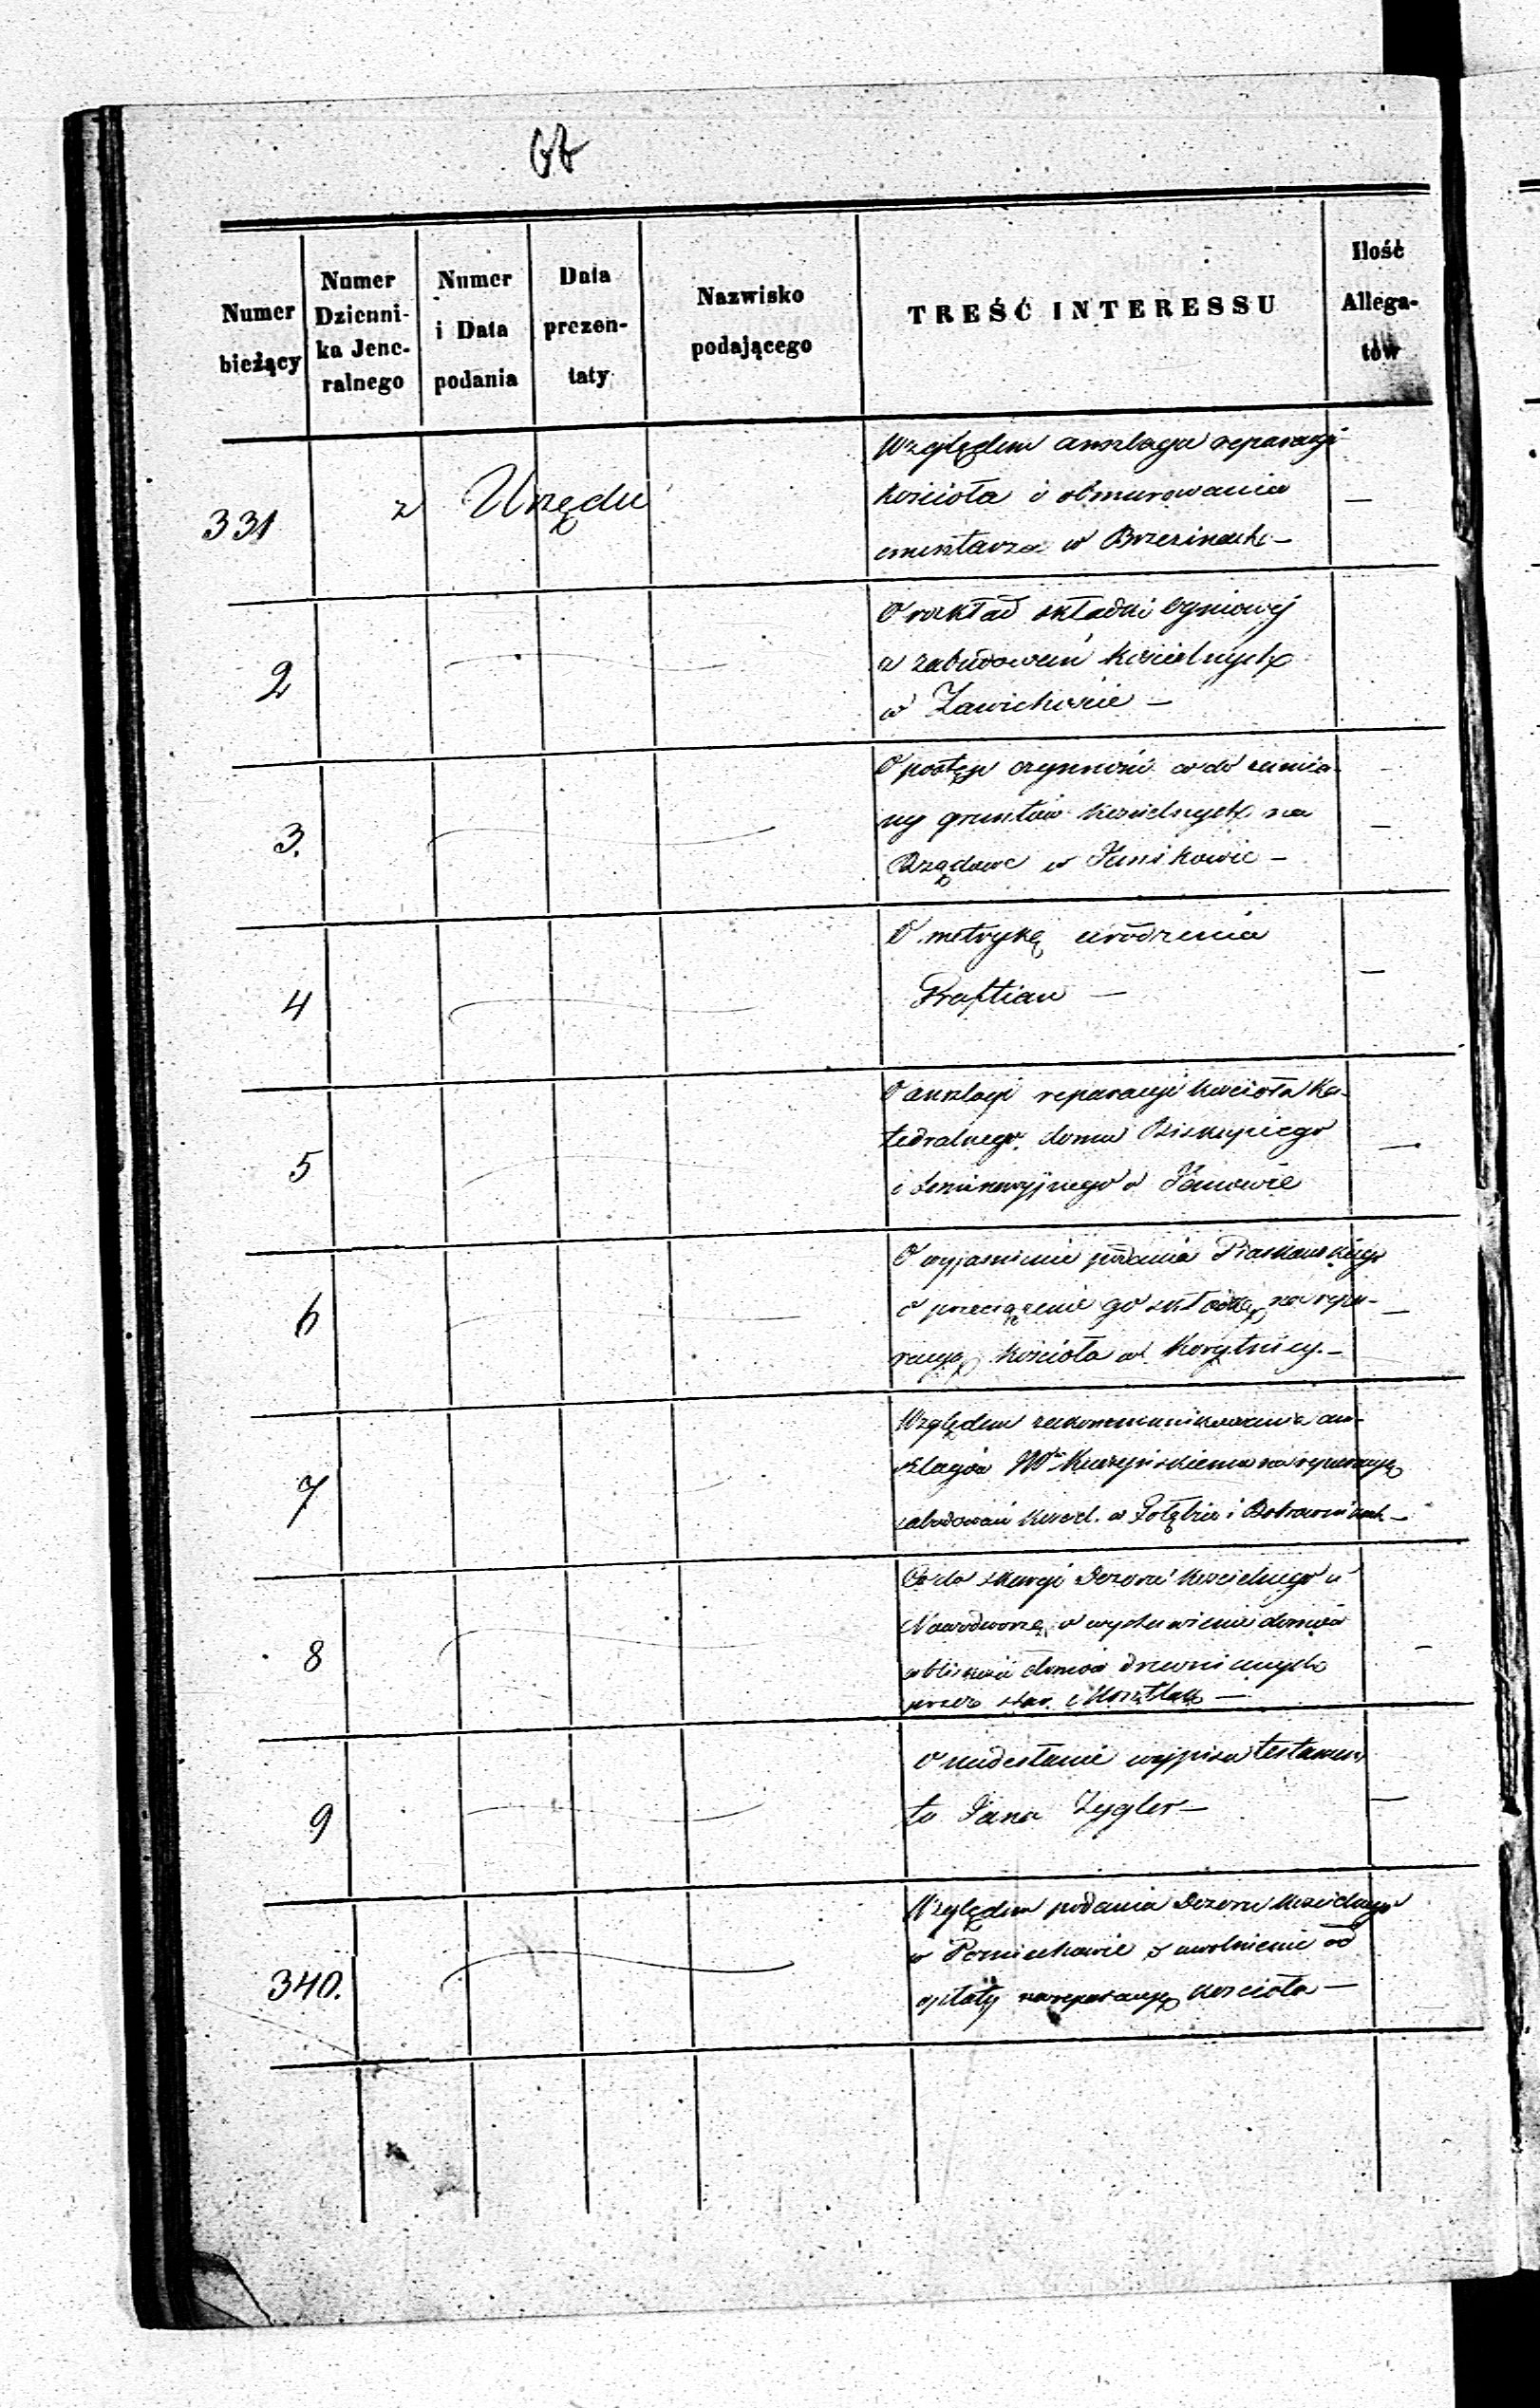 Numer bieżący
Numer Dzienni-ka Jene-ralnego
Numer i Data podania
Data prezen-taty
Nazwisko podającego
TREŚĆ INTERESSU
Ilość Allega-tów
331
z Urzędu
Względem anszlagu reparacyi
kościoła i obmurowania
cmentarza w Brzezinach —
—
2
O rozkład składki ogniowej
z zabudowań kościelnych
w Zawichoście —
3.
O postęp czynności co do zamia-
ny gruntów kościelnych na
Rządowe w Janikowie —
4
O metrykę urodzenia
—
5
O anszlagi reparacyi kościoła Ka-
tedralnego domu Biskupiego
i Seminaryjnego w Janowie
—
6
O wyjaśnienie podania Piaskowskiego
o przeciążenie go składką na repa-
racyą kościoła w Korytnicy. —
—
7
Względem zakommunikowania an-
szlagów Kuczyńskiemu na reparacyą
zabudowań kościel. w Gołębiu i Bobrownikach —
8
Co do skargi Dozoru kościelnego w
o wystawienie domów
w bliskości domów drewnianych
przez
—
9
O nadesłanie wypisu testamen
tu Jana Zygler —
—
340.
Względem podania Dozoru kościelnego
w Pomiechowie o uwolnienie od
opłaty na reparacyą kościoła —